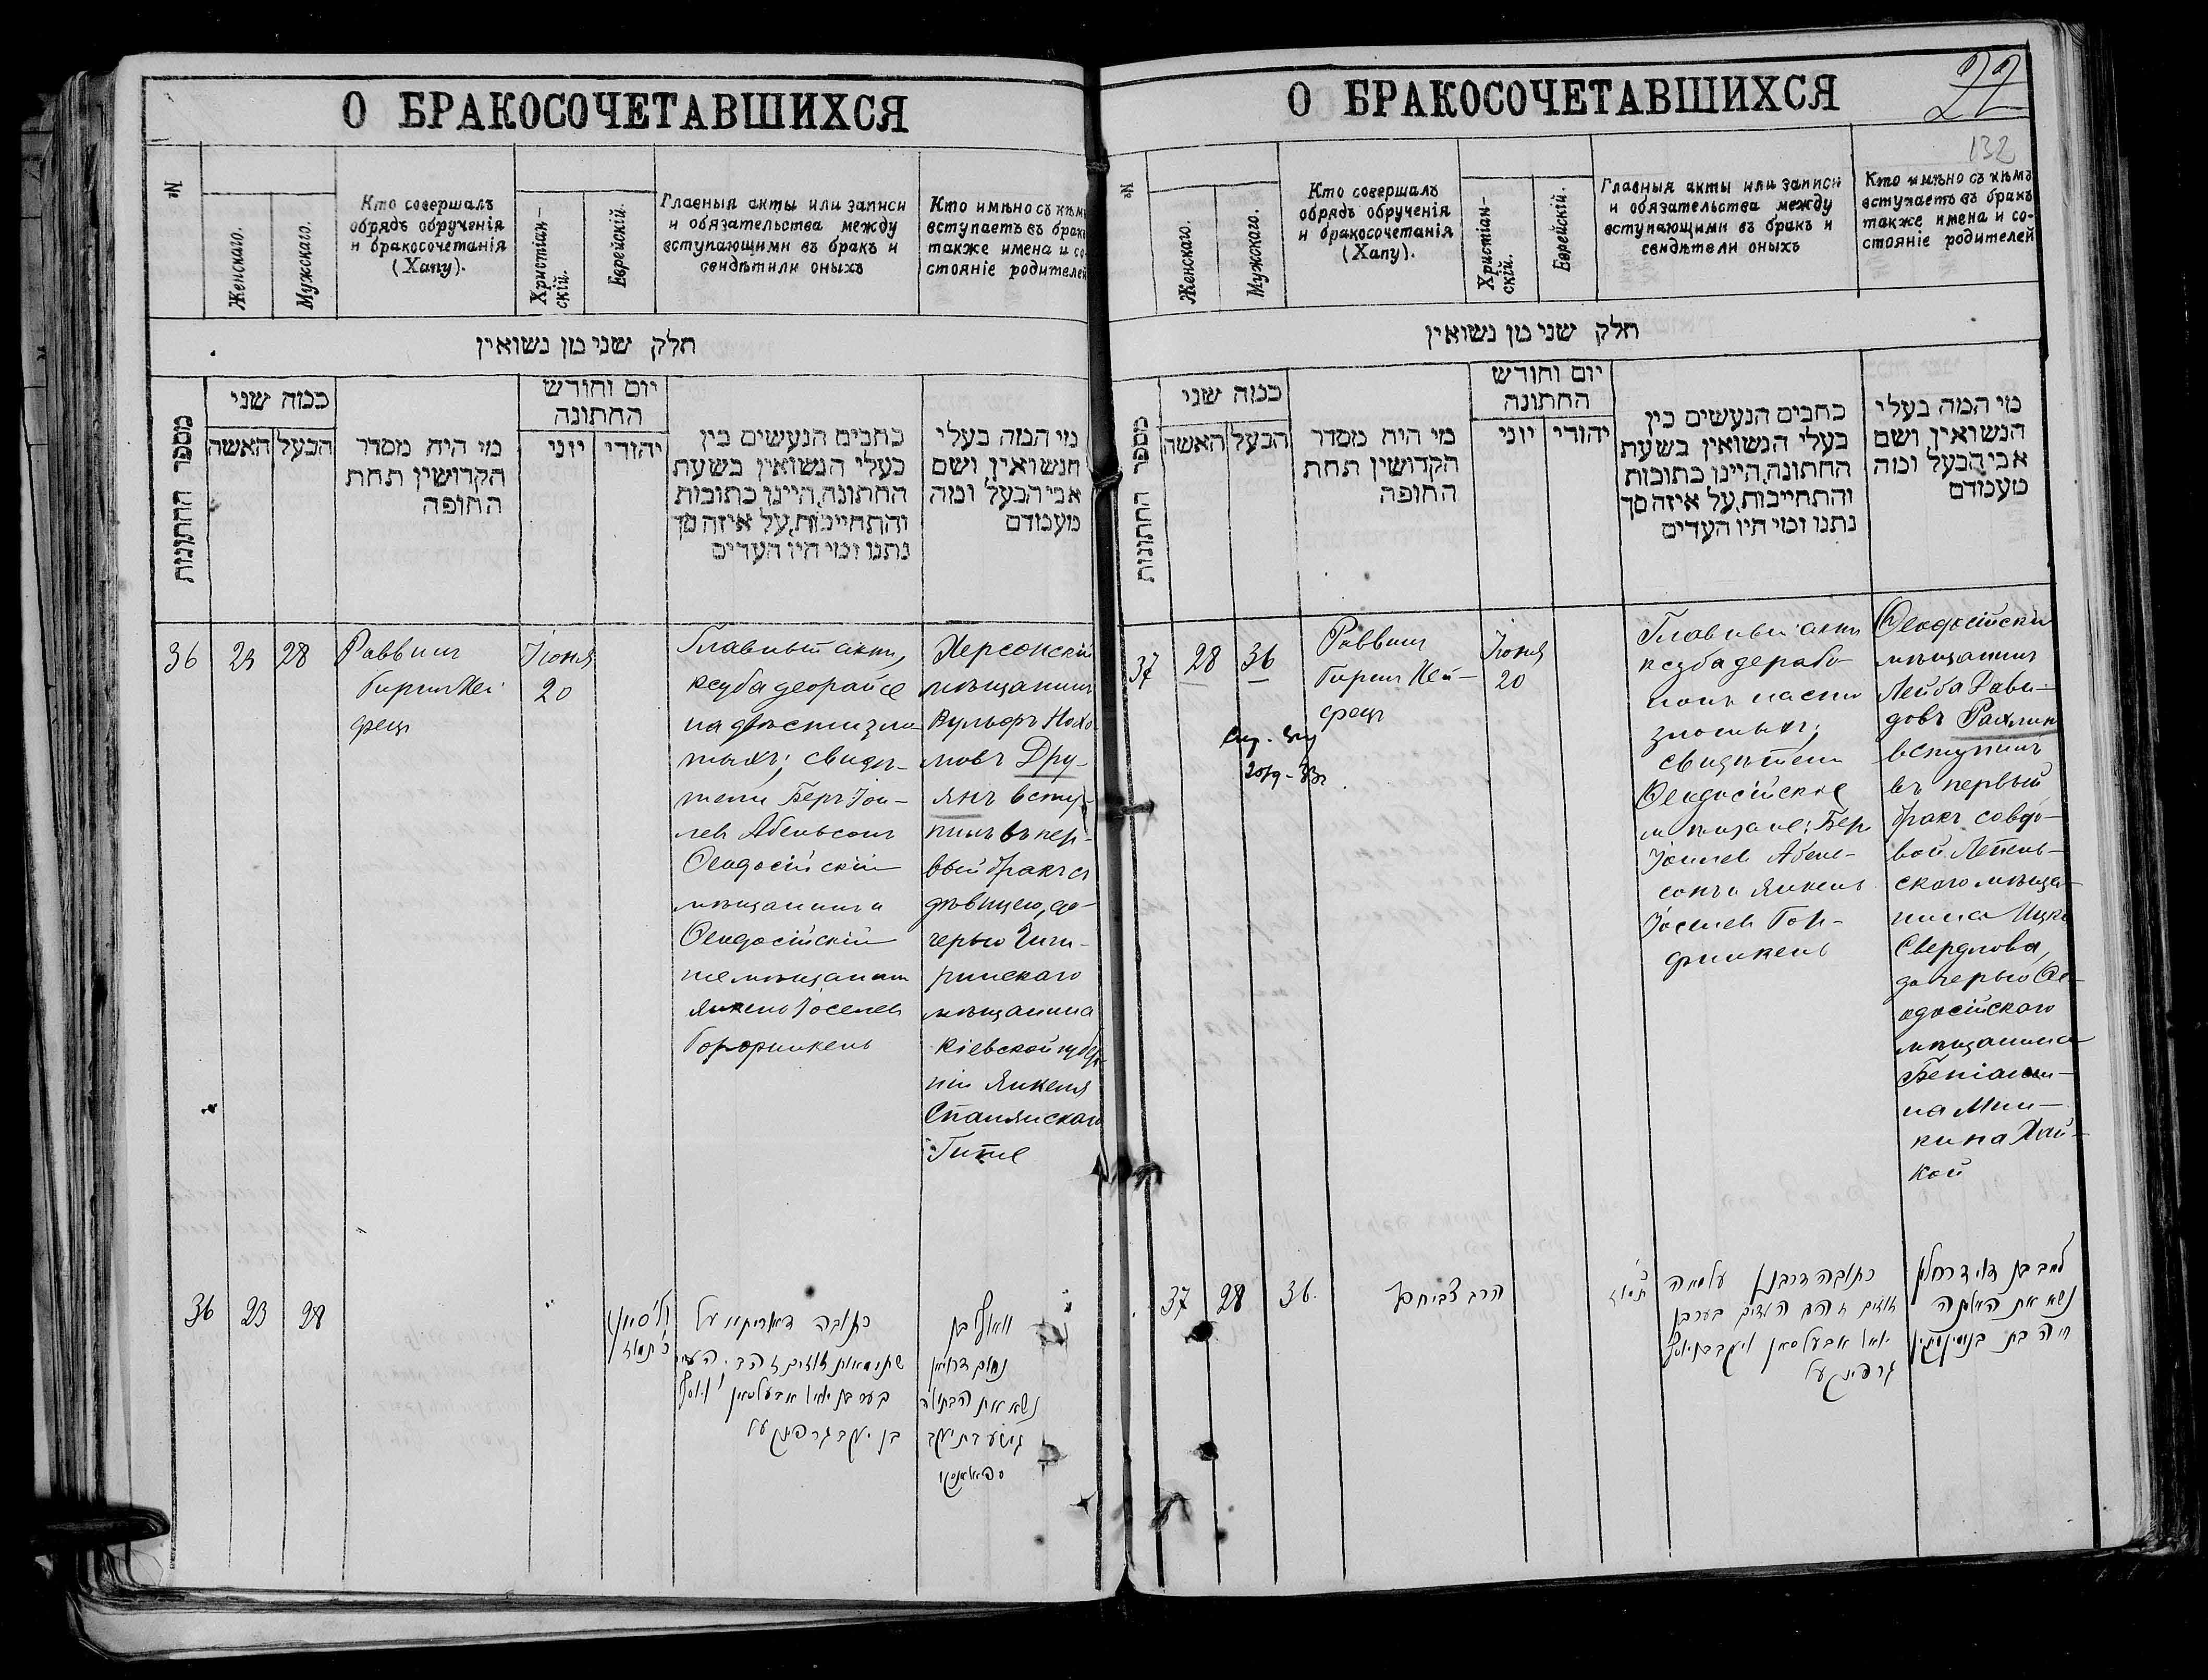 О БРАКОСОЧЕТАВШИХСЯ
№
Женскаго.
Мужскаго.
Кто совершалъ
обрядъ обрученія
и бракосочетанія
(Хапу).
Христіан-
скій.
Еврейскій.
Главныя акты или записи
и обязательства между
вступающими въ бракъ и
свидѣтили оныхъ
Кто имѣно съ кѣмъ
вступаетъ въ бракъ
также имена и со-
стояніе родителей
חלק שני מן נשואין
מספר החתונות
כמה שני
האשה
הבעל
מי היה מסדר
הקדושין תחת
החופה
יום וחודש
החתונה
יוני
יהודי
כתבים הנעשים בין
בעלי הנשואין בשעת
החתונה, היינו כתובות
והתחייבות, על איזה סך
נתנו ומי היו העדים
מי המה בעלי
הנשואין ושם
אבי הבעל ומה
מעמדם
36
23
28
Раввинъ
Гирш Ней
фец
Іюня
20
Главный актъ,
ксуба деорайсе
на двѣсти зло
тыхъ; свидѣ-
тели Беръ Іои-
лев Абельсонъ
Ѳеодосійскій
мѣщанинъ и
Ѳеодосійскій
же мѣщанинъ
Янкель Іоселев
Горфинкель
Херсонскій
мѣщанинъ
Вульфъ Нохи
мовъ Дру-
янъ всту-
пилъ въ пер-
вый бракъ съ
дѣвицею, до-
черью Чиги-
ринскаго
мѣщанина
Кіевской губер
ніи Янкеля
Спалянскаго
Гитле
36
23
28
כתובה דאורייתא על
שתי מאות זוזים זהב. העדים
בער בן יואל אבעלסאן
בן יעקב גרפינקעל
וואלף בן
נחום דרויאן
נשא את הבתולה
גיטע בת יעקב
О БРАКОСОЧЕТАВШИХСЯ
22
132
№
Женскаго.
Мужскаго.
Кто совершалъ
обрядъ обрученія
и бракосочетанія
(Хапу).
Христіан-
скій.
Еврейскій.
Главныя акты или записи
и обязательства между
вступающими въ бракъ и
свидѣтели оныхъ
Кто имѣно съ кѣмъ
вступаетъ въ бракъ
также имена и со-
стояніе родителей
חלק שני מן נשואין
מספר החתונות
כמה שני
האשה
הבעל
מי היה מסדר
הקדושין תחת
החופה
יום וחודש
החתונה
יוני
יהודי
כתבים הנעשים בין
בעלי הנשואין בשעת
החתונה, היינו כתובות
והתחייבות, על איזה סך
נתנו ומי היו העדים
מי המה בעלי
הנשואין ושם
אבי הבעל ומה
מעמדם
37
28
36
Раввинъ
Гирш Ней-
фец
Іюня
20
Главный актъ
ксуба дерабо-
нонъ на сто
злотыхъ;
свидѣтели
Ѳеодосійскіе
мѣщане: Бер
Іоилев Абель-
сонъ и Янкель
Іоселев Гор-
финкель
Ѳеодосійскій
мѣщанинъ
Лейба Дави-
довъ Рахлинъ
вступилъ
въ первый
бракъ съ вдо-
вой Лепель-
скаго мѣща-
нина Ицки
Свердлова,
дочерью Ѳе-
одосійскаго
мѣщанина
Беніами-
на Мин-
кина Хай-
кой
37
28
36.
הרב
כתובה דרבנן על מאה
זוזים זהב העדים בער בן
יואל אבעלסאן ויעקב בן יוסף
גרפינקעל
לייב בן דוד רחלין
נשא את האלמנה
חיה בת בנימין מינקין